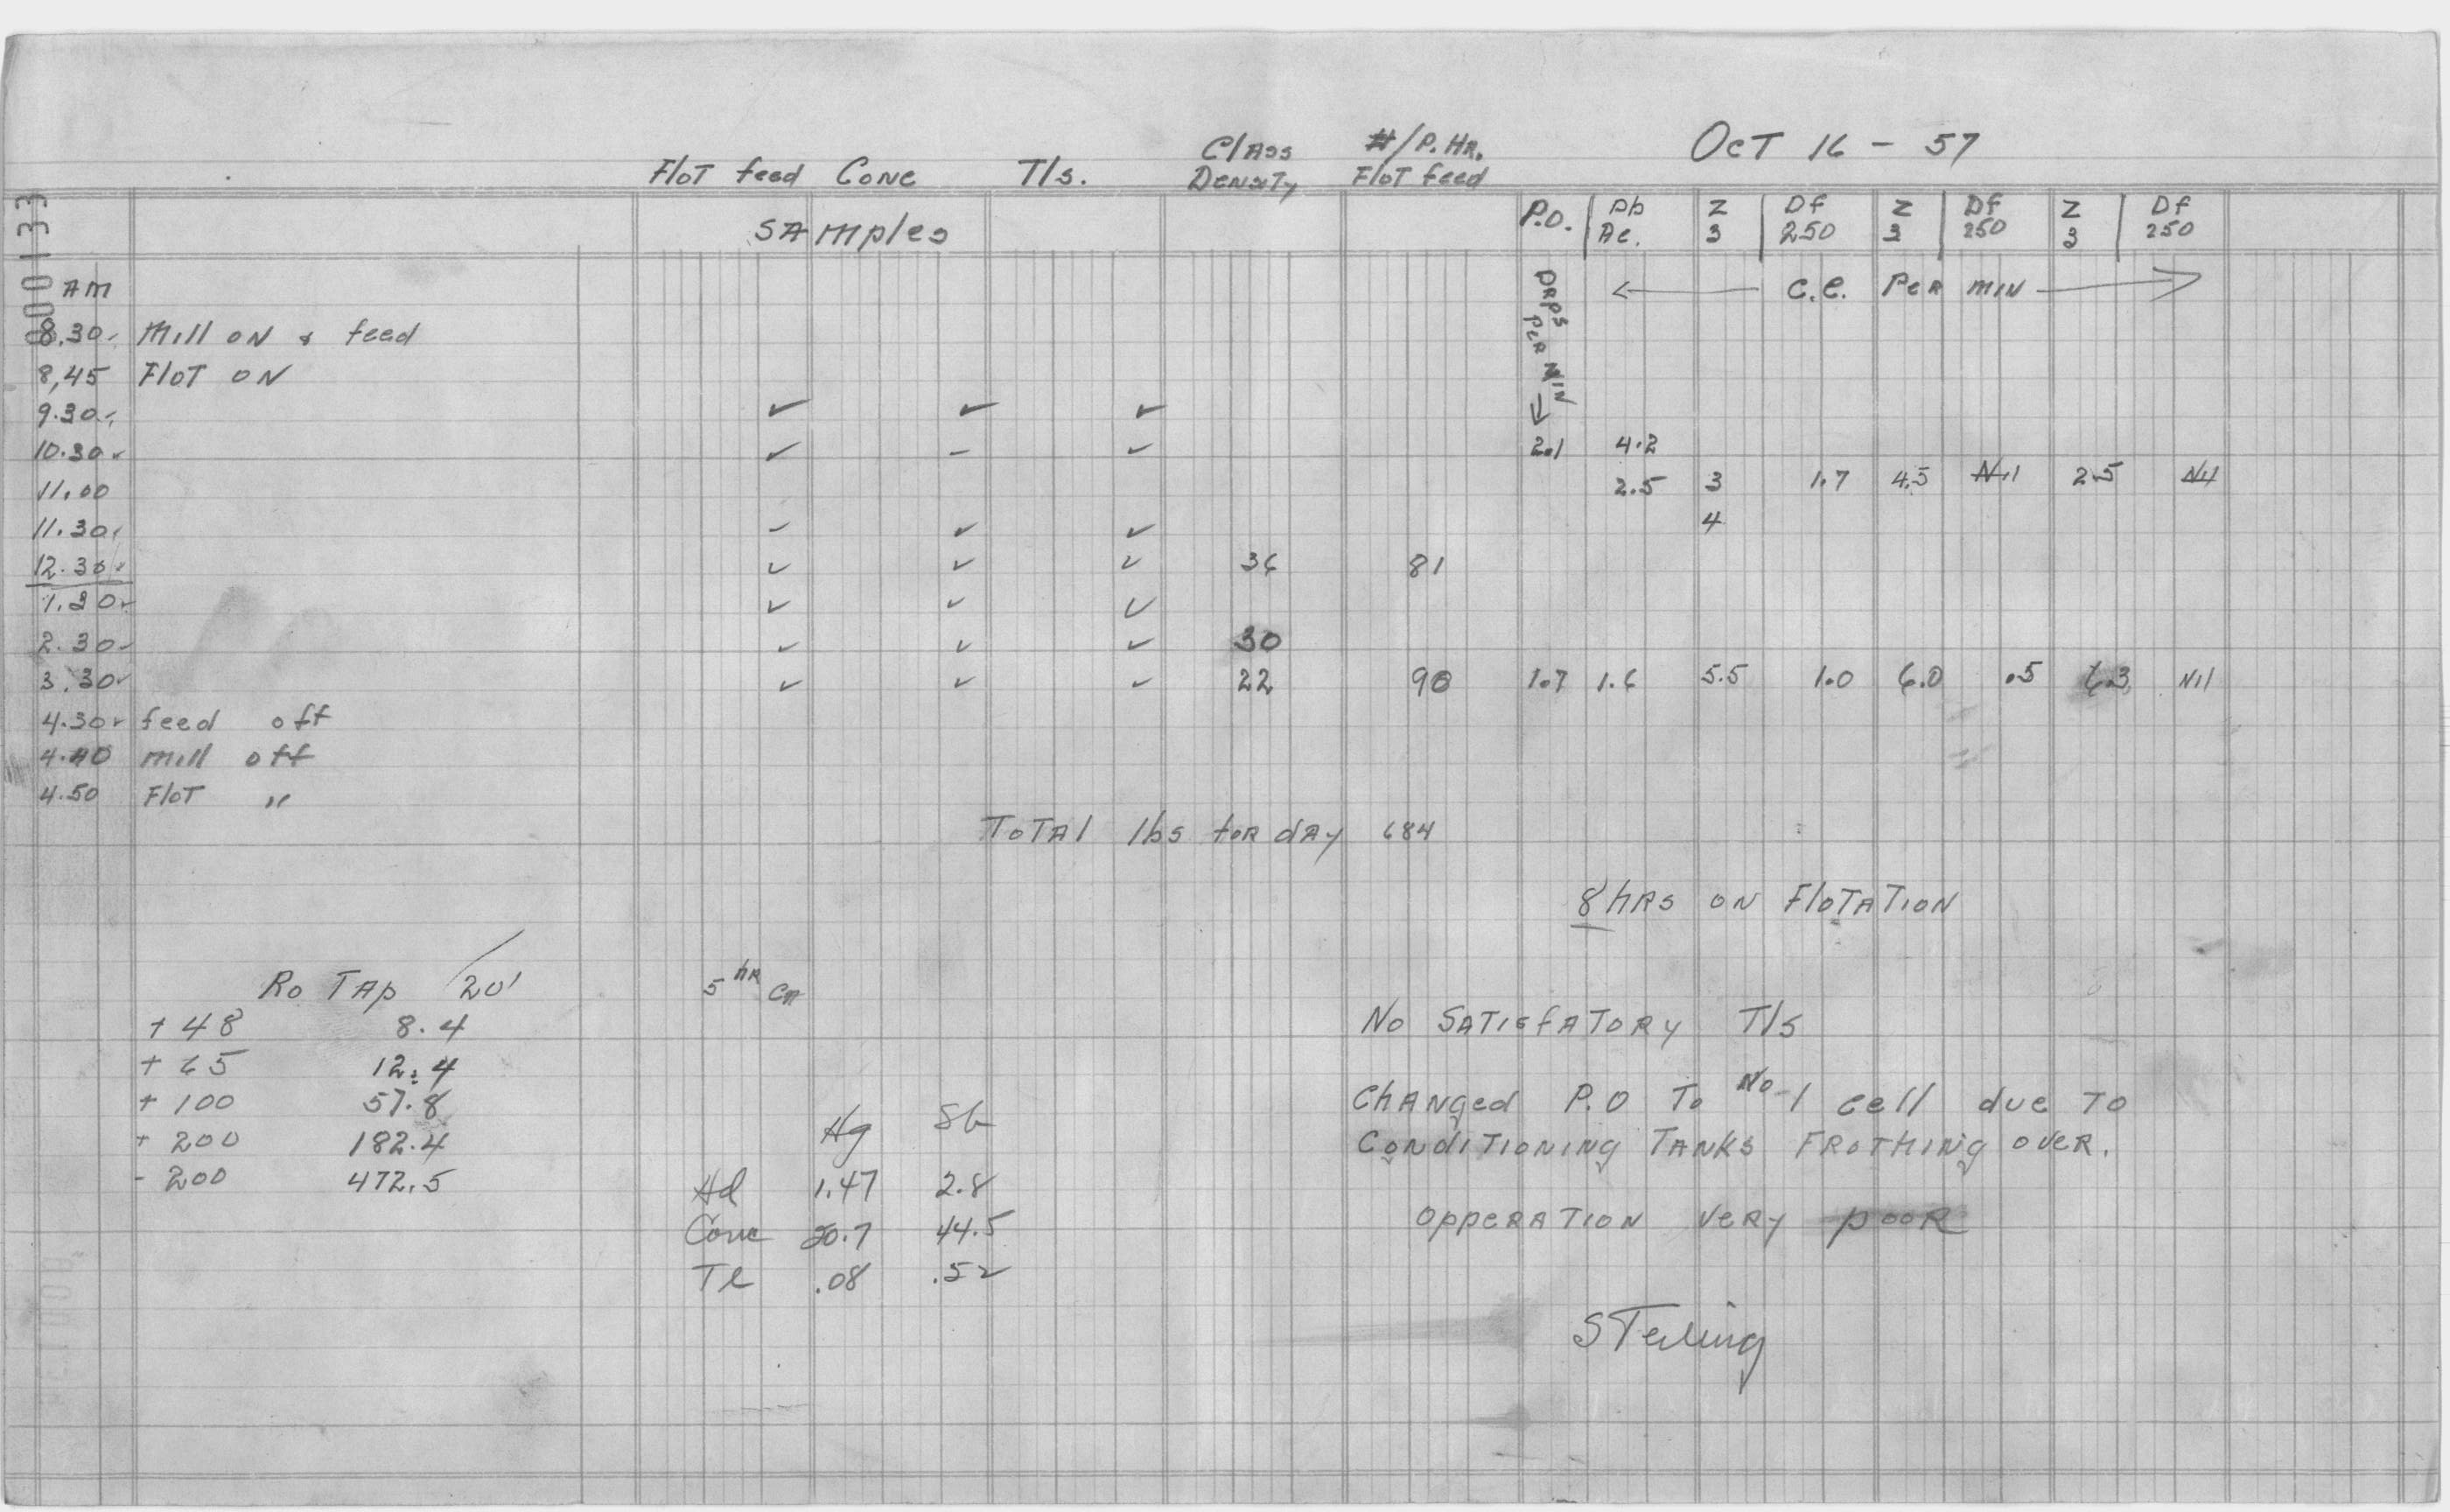 OCT 16 - 57
Flot feed Conc T/s. Class Density #/P.HR. Flot feed
SAmples P.O. Pb Ac. Z 3 Df 250 Z 3 Df 250 Z 3 Df 250
0000133
AM DRPS PER MIN ← C.C. PER MIN →
8.30 Mill ON & feed
8,45 Flot ON
9.30 ✓ ✓ ✓
10.30 ✓ - ✓ 2.1 4.2
11.00 2.5 3 1.7 4.5 Nil 2.5 Nil
11.30 - ✓ ✓ 4
12.30 ✓ ✓ ✓ 36 81
1.30 ✓ ✓ ✓
2.30 ✓ ✓ ✓ 30
3.30 ✓ ✓ ✓ 22 90 1.7 1.6 5.5 1.0 6.0 .5 6.3 Nil
4.30 feed off
4.40 mill off
4.50 Flot "
Total lbs for day 684
8 hrs on Flotation
Ro Tap /20' 5 hr
+ 48 8.4
+ 65 12.4
+ 100 57.8
+ 200 182.4
- 200 472.5
Hg Sb
Hd 1.47 2.8
Conc 20.7 44.5
Tl .08 .52
No Satisfatory T/s
Changed P.O To No 1 cell due to
Conditioning Tanks Frothing over.
Opperation very poor
Sterling